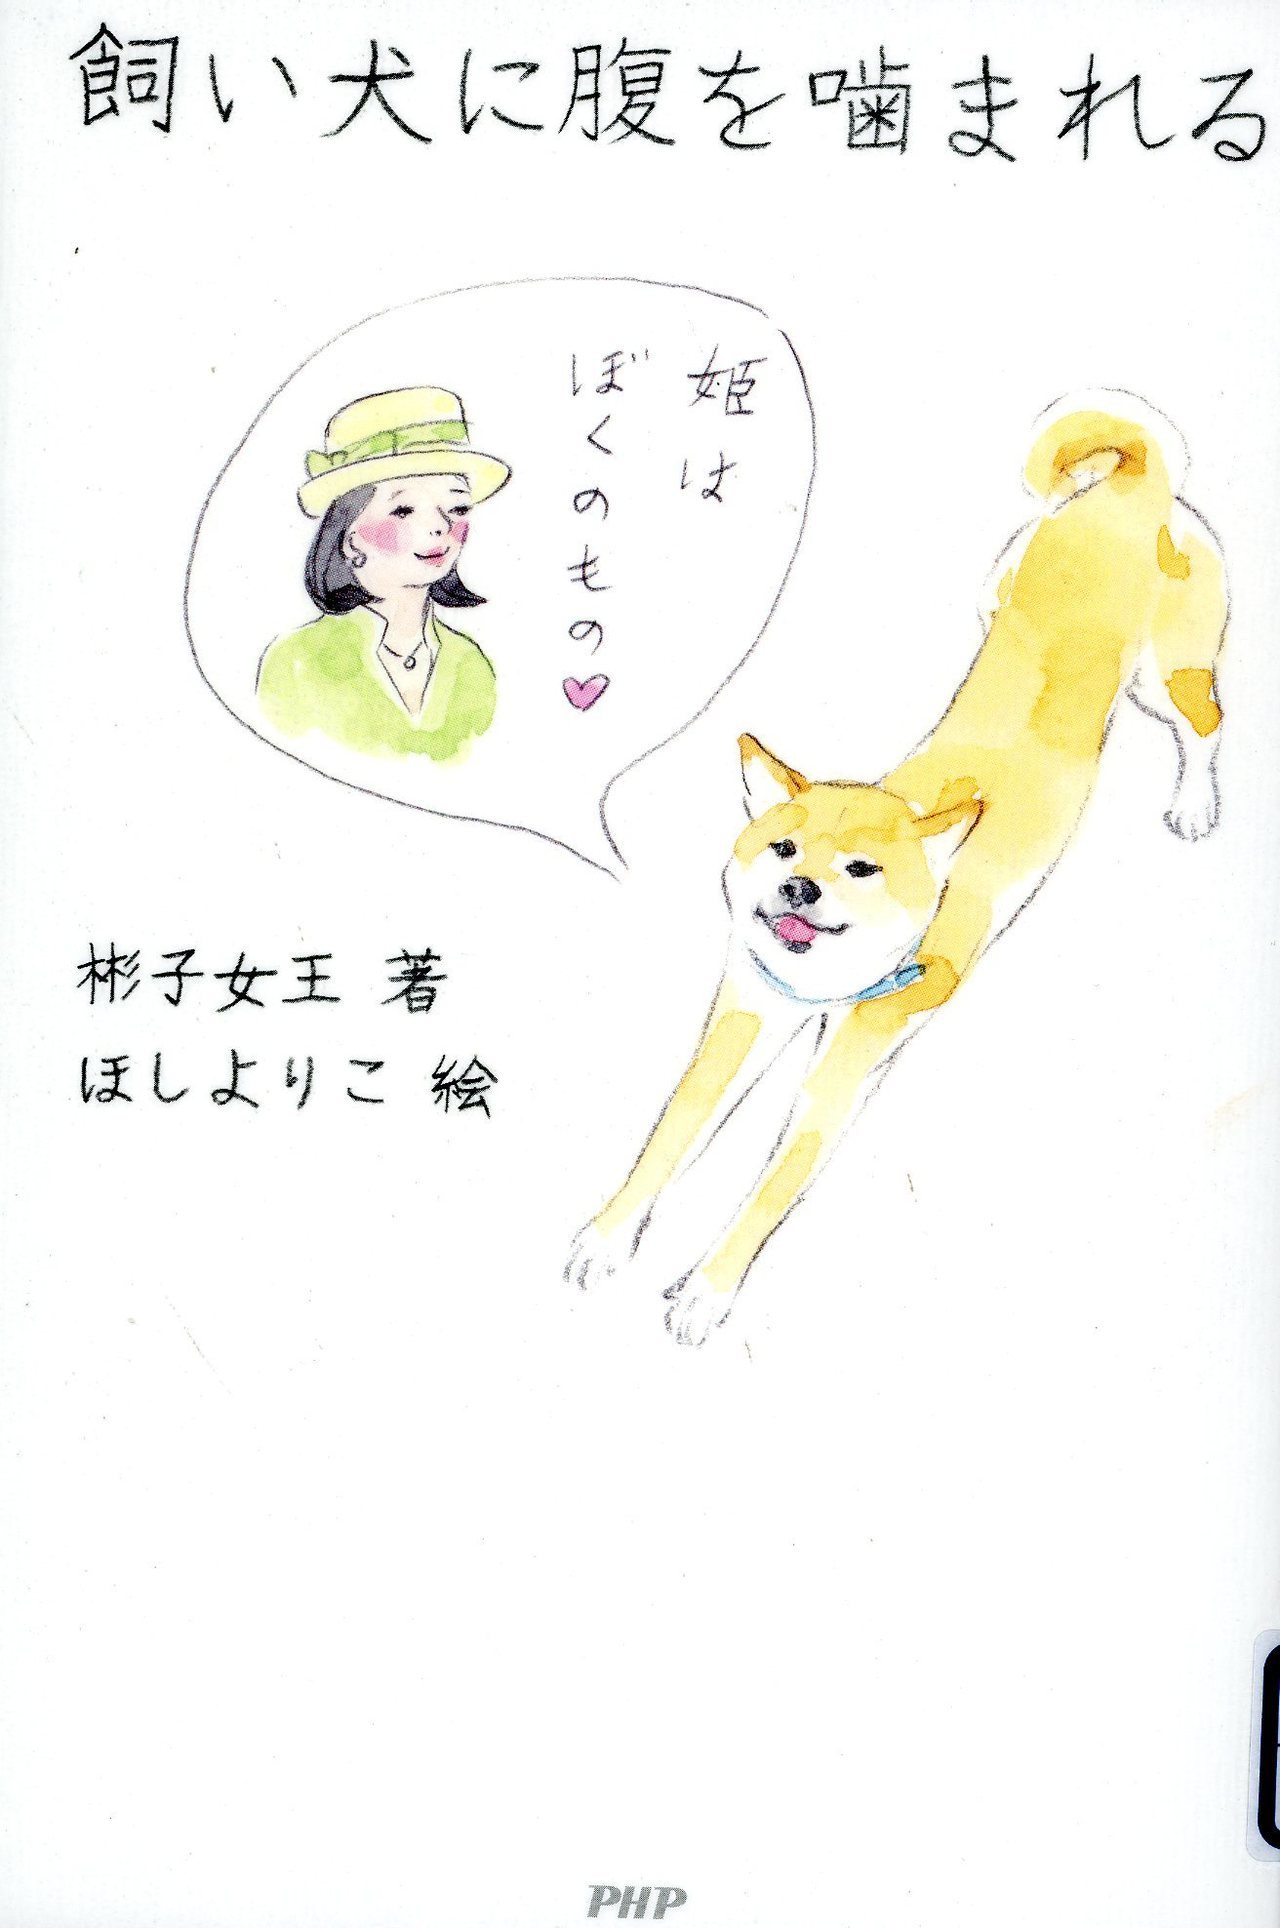 飼い犬に腹を噛まれる
姫は
ぼくのもの
彬子女王 著
ほしよりこ 絵
PHP